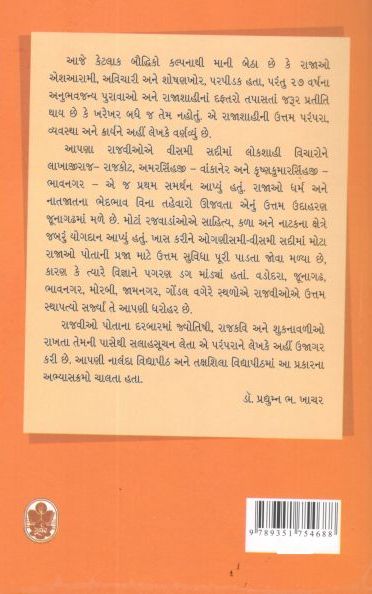 આજે કેટલાક બૌદ્ધિકો કલ્પનાથી માની બેઠા છે કે રાજાઓ
એશઆરામી, અવિચારી અને શોષણખોર, પરપીડક હતા, પરંતુ ૨૭ વર્ષના
અનુભવજન્ય પુરાવાઓ અને રાજાશાહીનાં દફતરો તપાસતાં જરૂર પ્રતીતિ
થાય છે કે ખરેખર બધું જ તેમ નહોતું. એ રાજાશાહીની ઉત્તમ પરંપરા,
વ્યવસ્થા અને કાર્યને અહીં લેખકે વર્ણવ્યું છે.
આપણા રાજવીઓએ વીસમી સદીમાં લોકશાહી વિચારોને
લાખાજીરાજ– રાજકોટ, અમરસિંહજી – વાંકાનેર અને કૃષ્ણકુમારસિંહજી –
ભાવનગર – એ જ પ્રથમ સમર્થન આપ્યું હતું. રાજાઓ ધર્મ અને
નાતજાતના ભેદભાવ વિના તહેવારો ઊજવતા એનું ઉત્તમ ઉદાહરણ
જૂનાગઢમાં મળે છે. મોટાં રજવાડાંઓએ સાહિત્ય, કળા અને નાટકના ક્ષેત્રે
જબરું યોગદાન આપ્યું હતું. ખાસ કરીને ઓગણીસમી-વીસમી સદીમાં મોટા
રાજાઓ પોતાની પ્રજા માટે ઉત્તમ સુવિધા પૂરી પાડતા જોવા મળ્યા છે,
કારણ કે ત્યારે વિજ્ઞાને પગરણ ડગ માંડ્યાં હતાં. વડોદરા, જૂનાગઢ,
ભાવનગર, મોરબી, જામનગર, ગોંડલ વગેરે સ્થળોએ રાજવીઓએ ઉત્તમ
સ્થાપત્યો સર્જ્યાં તે આપણી ધરોહર છે.
રાજવીઓ પોતાના દરબારમાં જ્યોતિષી, રાજકવિ અને શુકનાવળીઓ
રાખતા તેમની પાસેથી સલાહસૂચન લેતા એ પરંપરાને લેખકે અહીં ઉજાગર
કરી છે. આપણી નાલંદા વિદ્યાપીઠ અને તક્ષશિલા વિદ્યાપીઠમાં આ પ્રકારના
અભ્યાસક્રમો ચાલતા હતા.
ડૉ. પ્રદ્યુમ્ન ભ. ખાચર
ગૂર્જર
9 789351 754688